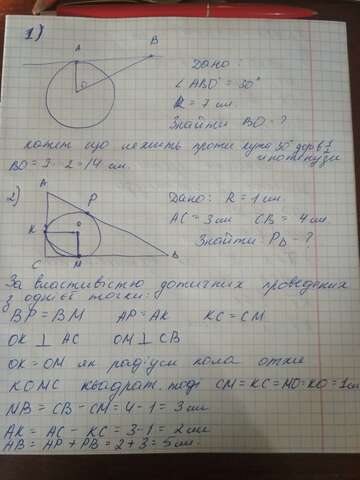 1)
A
B
O
Дано:
∠ABO = 30°
R = 7 см.
Знайти BO = ?
катет що лежить проти кута 30° дор. 1/2
гіпотенузи
BO = 7 · 2 = 14 см.
2)
A
P
K
O
C
M
B
Дано: R = 1 см.
AC = 3 см CB = 4 см.
Знайти: P∆ - ?
За властивістю дотичних проведених
з однієї точки:
BP = BM AP = AK KC = CM
OK ⊥ AC OM ⊥ CB
OK = OM як радіуси кола отже
KOMC квадрат. тоді CM = KC = MO = KO = 1 см
MB = CB - CM = 4 - 1 = 3 см
AK = AC - KC = 3 - 1 = 2 см
AB = AP + PB = 2 + 3 = 5 см.